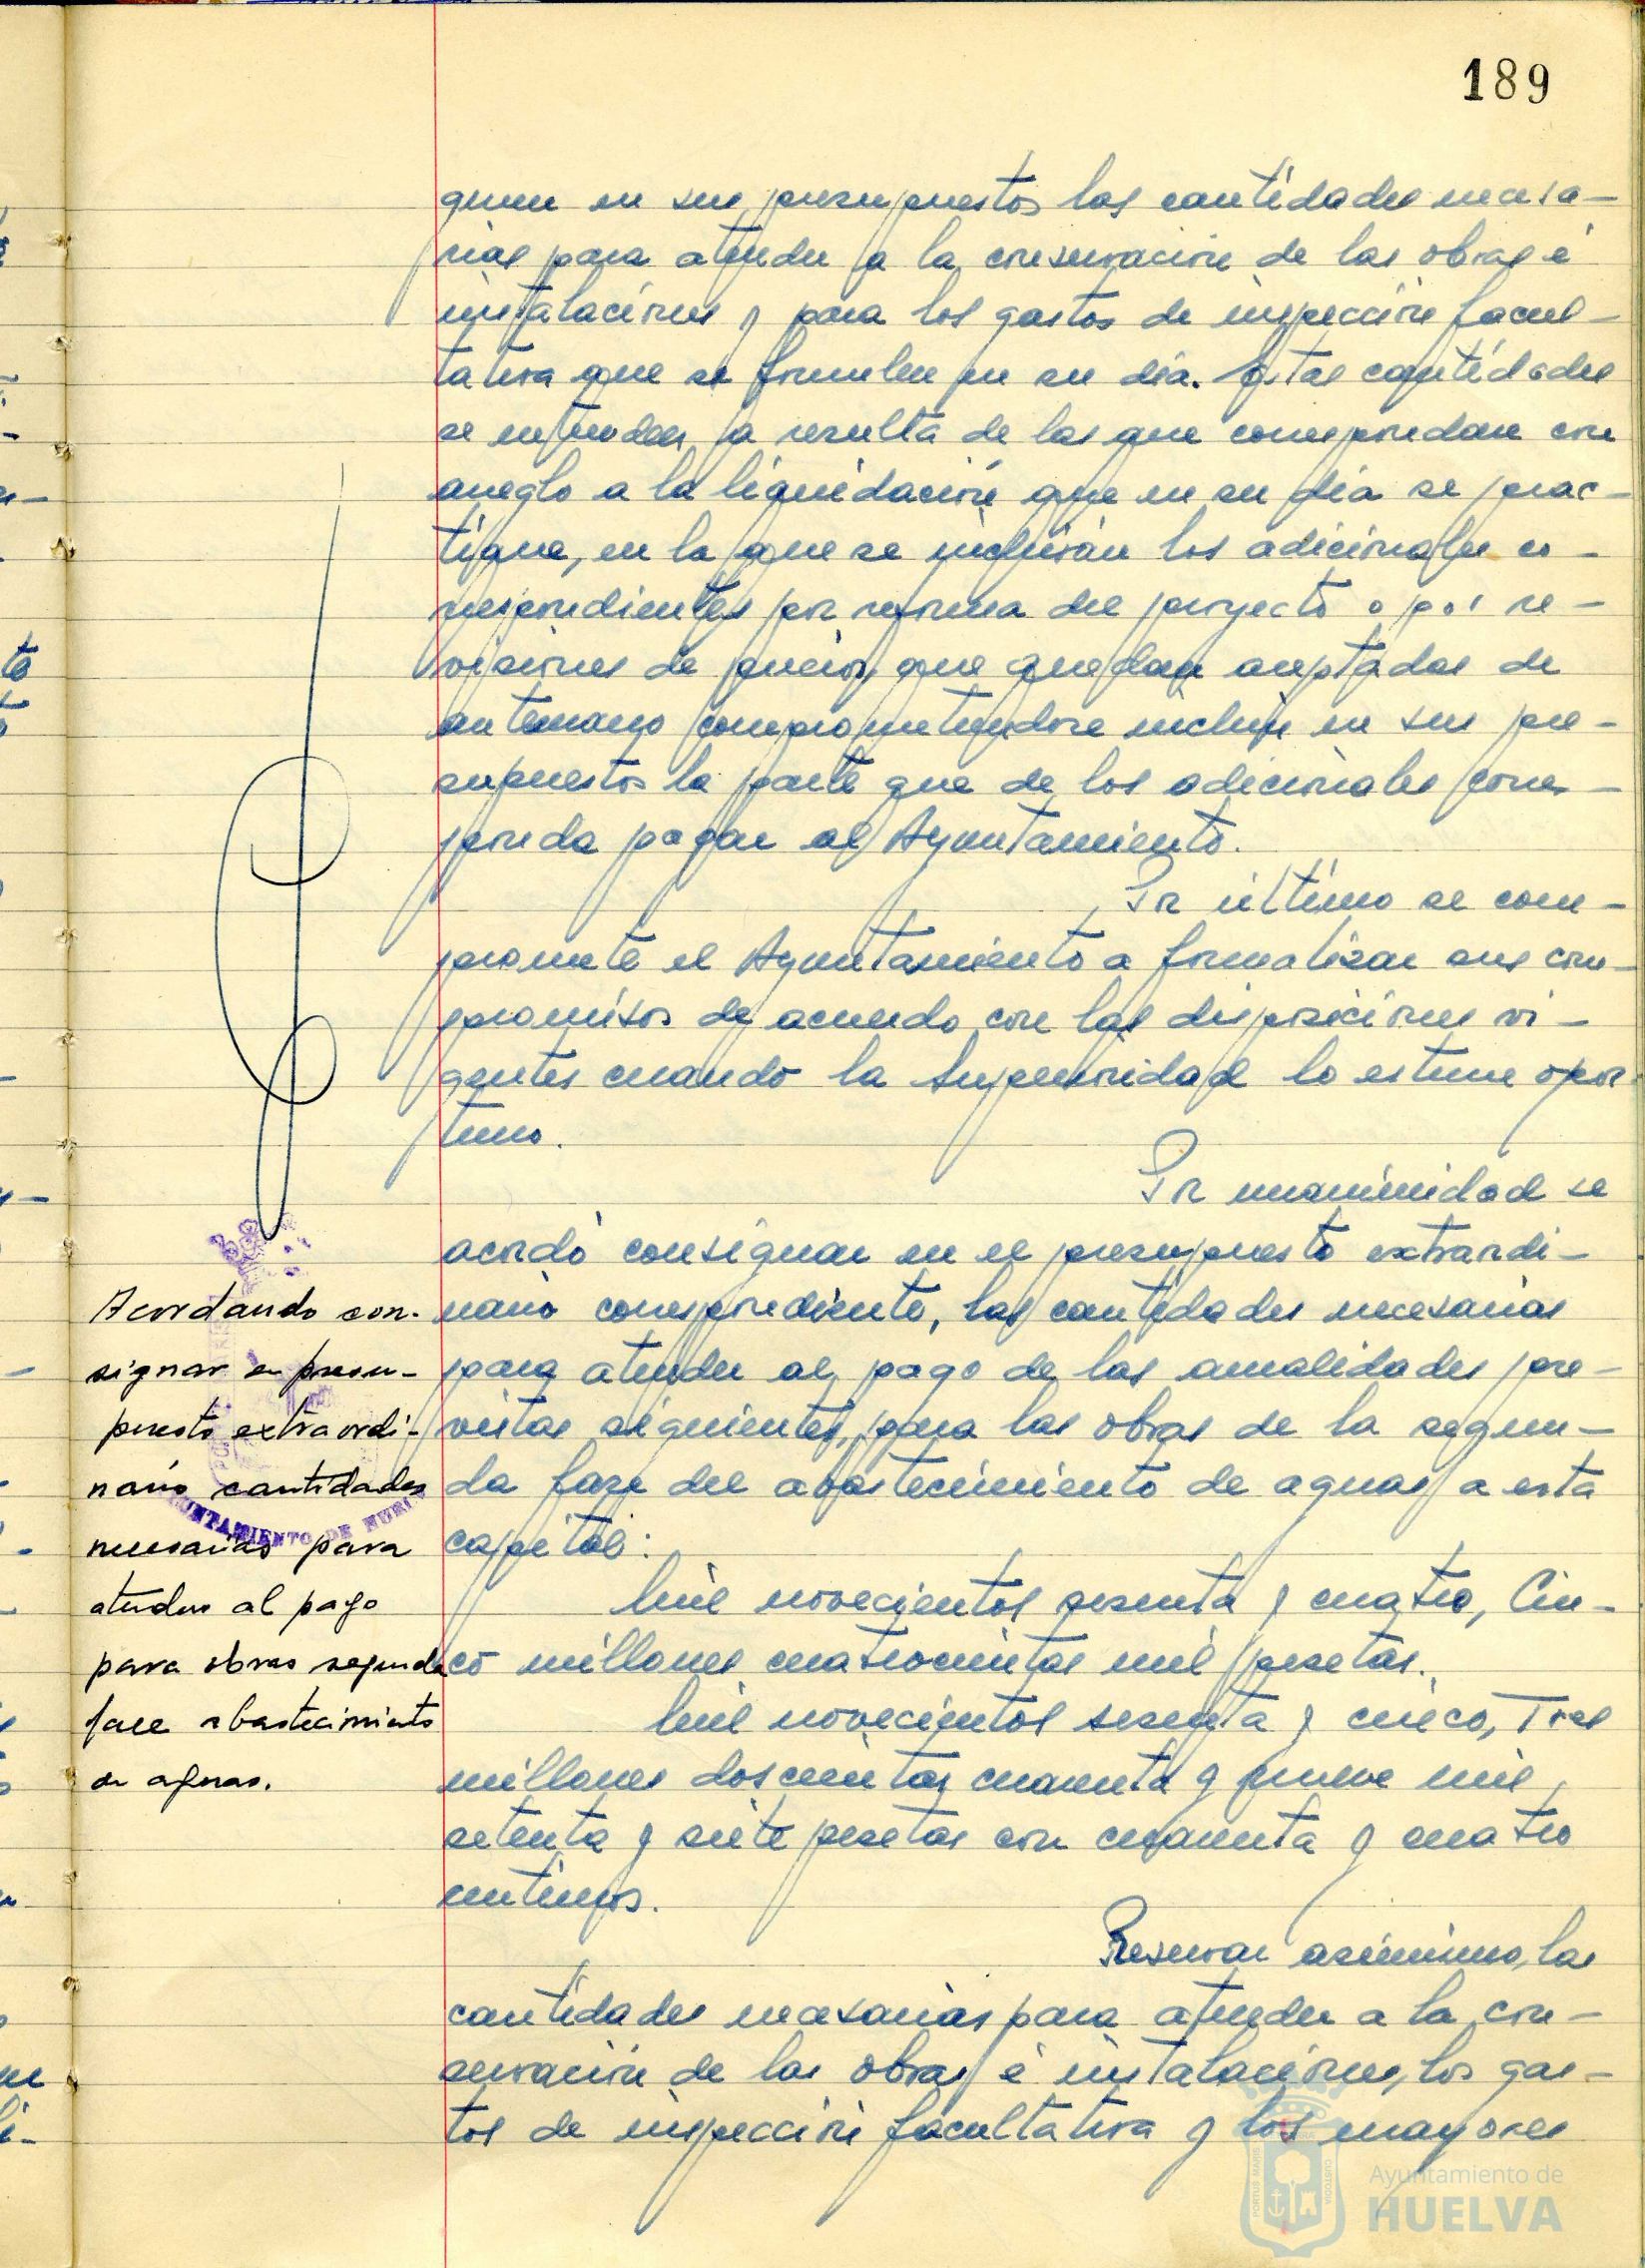 189
quen en sus presupuestos las cantidades necesa-
rias para atender a la conservación de las obras é
instalaciones y para los gastos de inspección facul-
tativa que se formulen en su día. Estas cantidades
se entienden a resulta de las que correspondan con
arreglo a la liquidación que en su día se prac-
tique, en la que se incluirán los adicionales co-
rrespondientes por reforma del proyecto o por re-
visiones de precios, que quedan aceptadas de
antemano comprometiendose incluir en sus pre-
supuestos la parte que de los adicionales corres-
ponda pagar al Ayuntamiento.
Por último se com-
promete el Ayuntamiento a formalizar sus com-
promisos de acuerdo con las disposiciones vi-
gentes cuando la Superioridad lo estime opor-
tuno.
Por unanimidad se
acordó consignar en el presupuesto extraordi-
nario correspondiente, las cantidades necesarias
para atender al pago de las anualidades pre-
vistas siguientes, para las obras de la segun-
da fase del abastecimiento de aguas a esta
capital:
Mil novecientos sesenta y cuatro, Cin-
co millones cuatrocientas mil pesetas.
Mil novecientos sesenta y cinco, Tres
millones doscientas cuarenta y nueve mil
setenta y siete pesetas con cuarenta y cuatro
centimos.
Reservar asimismo, las
cantidades necesarias para atender a la con-
servación de las obras é instalaciones, los gas-
tos de inspección facultativa y los mayores
Acordando con-
signar en presu-
puesto extraordi-
nario cantidades
necesarias para
atender al pago
para obras segunda
fase abastecimiento
de aguas.
AYUNTAMIENTO DE HUELVA
Ayuntamiento de
HUELVA